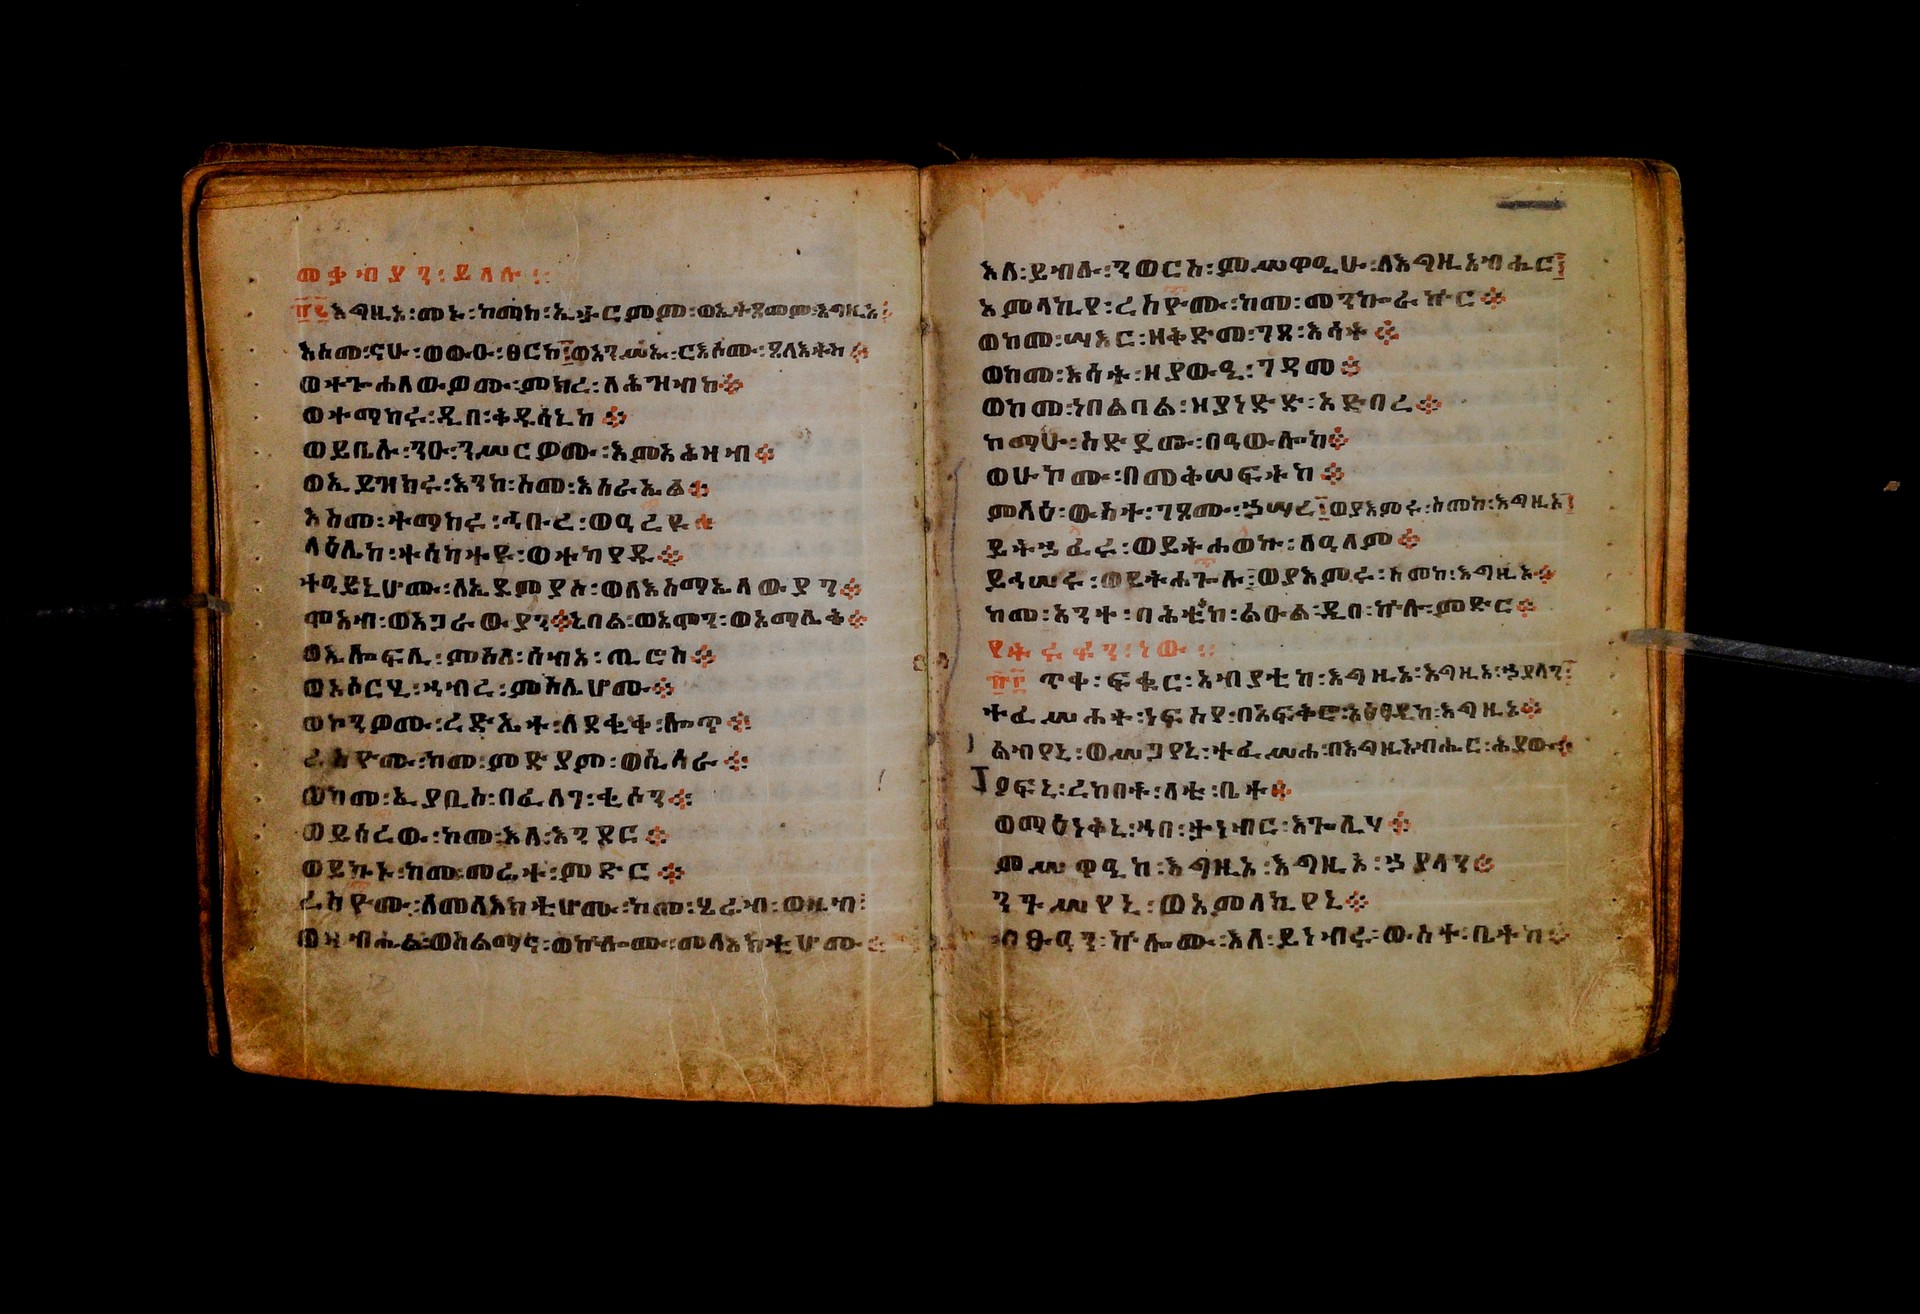 ፹፪እግዚአ፡መኑ፡ከማከ፡ኢታርምም፡ወኢትጸመም፡እግዚአ፡
እስመ፡ናሁ፡ወውዑ፡ፀርከ፤ወአንሥኡ፡ርእሶሙ፡ጸላእትከ።
ወተጕሐለውዎሙ፡ምክረ፡ለሕዝብከ።
ወተማከሩ፡ዲበ፡ቅዱሳኒከ።
ወይቤሉ፡ንዑ፡ንሠርዎሙ፡እምአሕዛብ።
ወኢይዝከሩ፡እንከ፡ስመ፡እስራኤል።
እስመ፡ተማከሩ፡ኅቡረ፡ወዐረዩ።
ላዕሌከ፡ተሰካተዩ፡ወተካየዱ።
ተዓይኒሆሙ፡ለኢዶምያስ፡ወለእስማኤላውያን።
ሞአብ፡ወአጋራውያን።ጌባል፡ወአሞን፡ወአማሌቅ።
ወኢሎፍሊ፡ምስለ፡ሰብአ፡ጢሮስ።
ወአሶርሂ፡ኀብረ፡ምስሌሆሙ።
ወኮንዎሙ፡ረድኤተ፡ለደቂቀ፡ሎጥ።
ረስዮሙ፡ከመ፡ምድያም፡ወሲሳራ።
ወከመ፡ኢያቢስ፡በፈለገ፡ቂሶን።
ወይሰረው፡ከመ፡እለ፡እንዶር።
ወይኩኑ፡ከመ፡መሬተ፡ምድር።
ረስዮሙ፡ለመላእክቲሆሙ፡ከመ፡ሄሬብ፡ወዜብ፡
ወዛብሔል፡ወስልማና፡ወኵሎሙ፡መላእክቲሆሙ።
እለ፡ይብሉ፡ንወርስ፡ምሥዋዒሁ፡ለእግዚአብሔር፤
አምላኪየ፡ረስዮሙ፡ከመ፡መንኰራኵር።
ወከመ፡ሣእር፡ዘቅድመ፡ገጸ፡እሳት።
ወከመ፡እሳት፡ዘያውዒ፡ገዳመ።
ወከመ፡ነበልባል፡ዘያነድድ፡አድባረ።
ከማሁ፡ስድዶሙ፡በዓውሎከ።
ወሁኮሙ፡በመቅሠፍትከ።
ምላዕ፡ውስተ፡ገጾሙ፡ኃሣረ፤ወያእምሩ፡ስመከ፡እግዚአ፤
ይትኃፈሩ፡ወይትሐወኩ፡ለዓለም።
ይኅሠሩ፡ወይትሐጐሉ፤ወያእምሩ፡ስመከ፡እግዚአ።
ከመ፡አንተ፡ባሕቲከ፡ልዑል፡ዲበ፡ኵሉ፡ምድር።
፹፫ጥቀ፡ፍቁር፡አብያቲከ፡እግዚአ፡እግዚአ፡ኃያላን፤
ልብየኒ፡ወሥጋየኒ፡ተፈሥሐ፡በእግዚአብሔር፡ሕያው።
ዖፍኒ፡ረከበት፡ላቲ፡ቤተ።
ወማዕነቅኒ፡ኀበ፡ታነብር፡እጐሊሃ።
ምሥዋዒከ፡እግዚአ፡እግዚአ፡ኃያላን።
ንጉሥየኒ፡ወአምላኪየኒ።
ብፁዓን፡ኵሎሙ፡እለ፡ይነብሩ፡ውስተ፡ቤትከ።